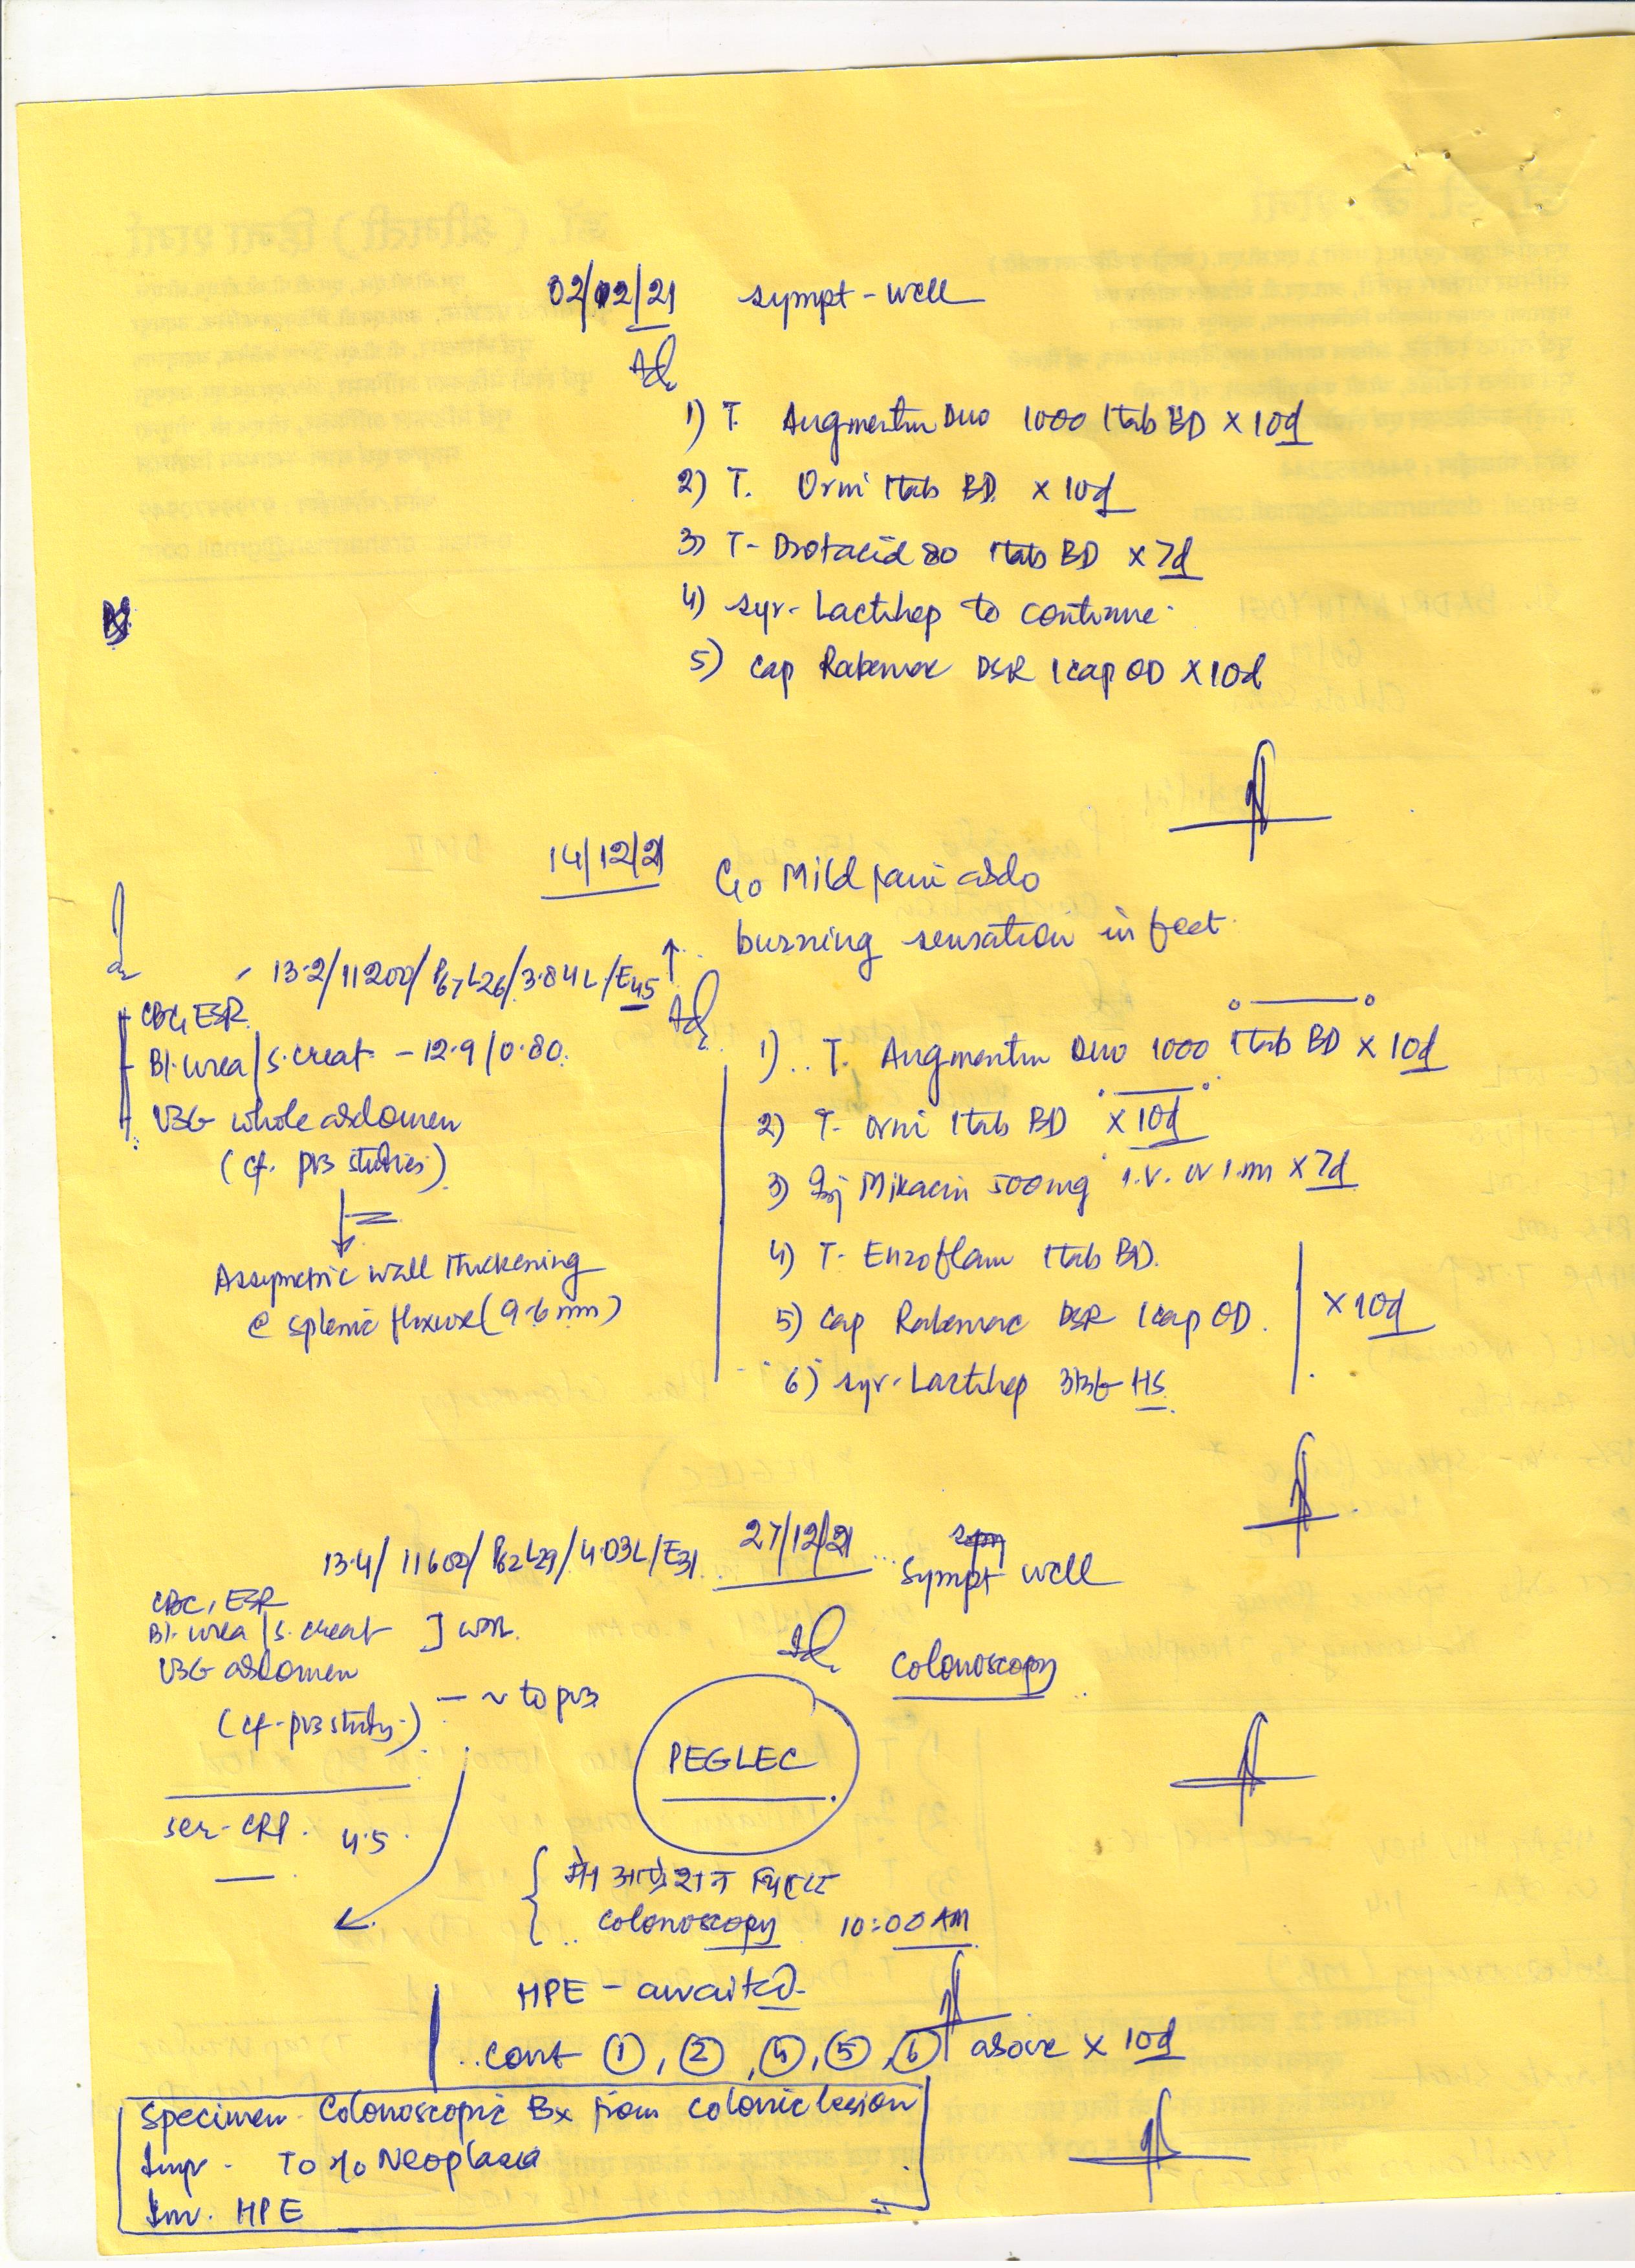 02/12/21 sympt - well
Ad
1) T. Augmentin Duo 1000 1tab BD x 10d
2) T. Orni 1tab BD x 10d
3) T- Drotacid 80 1tab BD x 7d
4) syr- Lactihep to continue
5) cap Rabemac DSR 1cap OD x 10d
14/12/21 C/o Mild pain abdo
burning sensation in feet
13.2/11200/P67L26/3.84L/E45 ↑
Ad
CBC, ESR
Bl. urea/s. creat - 12.9/0.80
USG whole abdomen
(cf. prv studies)
Assymetric wall thickening
@ splenic flexure (9.6 mm)
1) T. Augmentin Duo 1000 1tab BD x 10d
2) T- Orni 1tab BD x 10d
3) Inj Mikacin 500mg i.v. or i.m x 7d
4) T- Enzoflam 1tab BD
5) cap Rabemac DSR 1cap OD
x 10d
6) syr- Lactihep HS
13.4/11600/P62L29/4.03L/E31
27/12/21 sympt well
CBC, ESR
Bl. urea/s. creat ] WNL
USG abdomen
(cf- prv study) - ~ to prv
Ad colonoscopy
PEGLEC
ser- CRP 4.5
colonoscopy 10:00 AM
HPE - awaited
cont ①, ②, ④, ⑤, ⑥ above x 10d
Specimen- Colonoscopic Bx from colonic lesion
Imp - To r/o Neoplasia
Inv. HPE